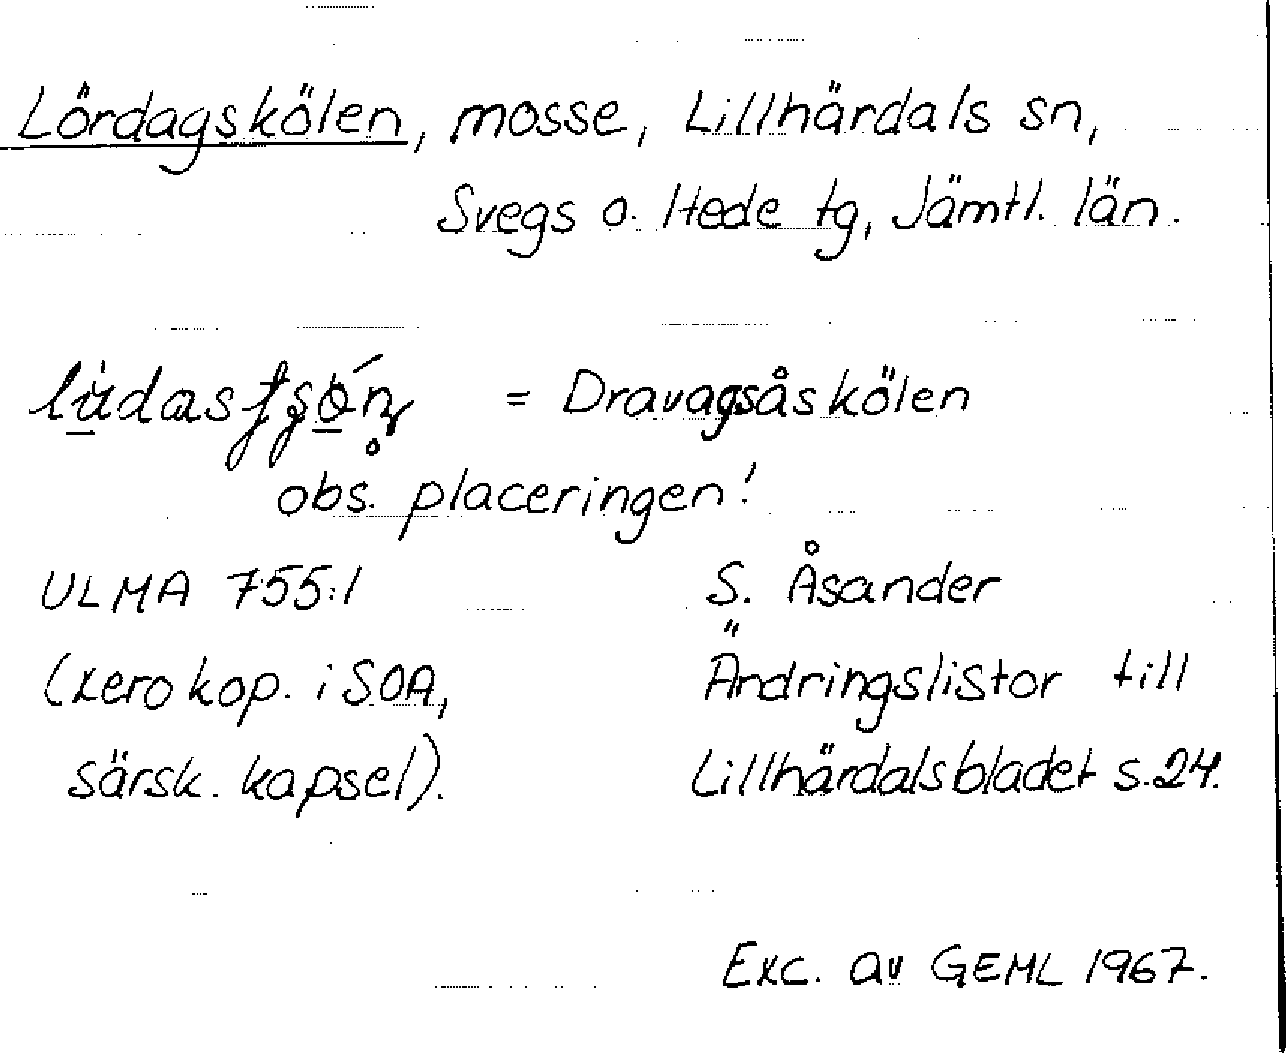 Lördagskölen, mosse, Lillhärdals sn,
Svegs o. Hede tg, Jämtl. län.
= Dravagsåskölen
obs. placeringen!
ULMA 755:1 S. Åsander
(xerokop. i SOA, Ändringslistor till
särsk. kapsel). Lillhärdalsbladet s.24.
Exc. av GEML 1967.